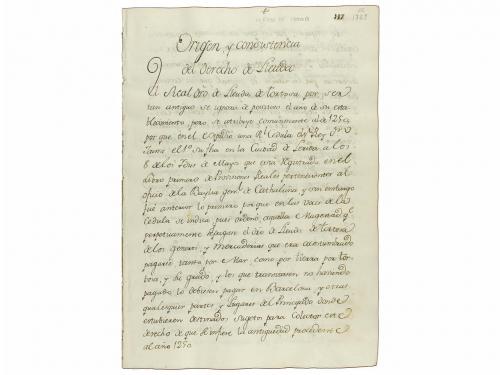 1789
Origen y consistencia
del derecho de Lleudas
El Real dro de Lleuda de tortosa por ser
tan antiguo se ignora de positivo el año de su esta
blecimiento pero se atribuye comunmente al de 1250
por que en el expidio una Rl Cedula el Sr Rey Dn
Jayme el 1º su fha en la Ciudad de Lerida a los
8 de los Idus de Mayo que está registrado en el
libro primero de Provisiones Reales pertenecientes al
oficio de la Baylia genl de Cathaluña y sin embargo
fué anterior lo primero porque en las voces de la
Cedula se indica pues ordenó aquella Magestad qe
perpetuamente paguen el dro de Lleudas de tortosa
de los generos, y Mercadurias que era acostumbrado
pagarse tanto por el Mar, como por tierra por tor
tosa, y su grado, y los que transitaren no haviendo
pagado lo debiesen pagar en Barcelona, y otras
qualesquier partes y Lugares del Principado donde
estubieren destinados sugetos para Colectar este
derecho de que se infiere la antiguedad procedente
al año 1250